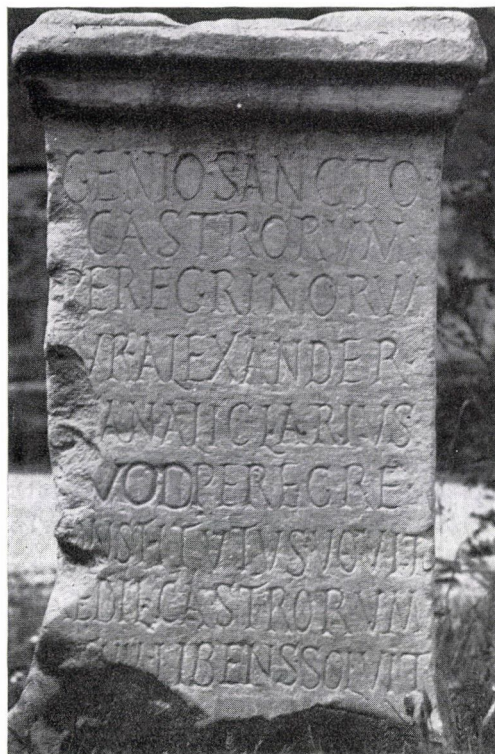 GENIO·SANCTO·
CASTRORVM·
PEREGRINORVM
VR·ALEXANDER·
ANALICLARIVS
VOD PEREGRE·
NSTITVTVS VOVIT
EDIL CASTRORVM
LIBENS SOLVIT